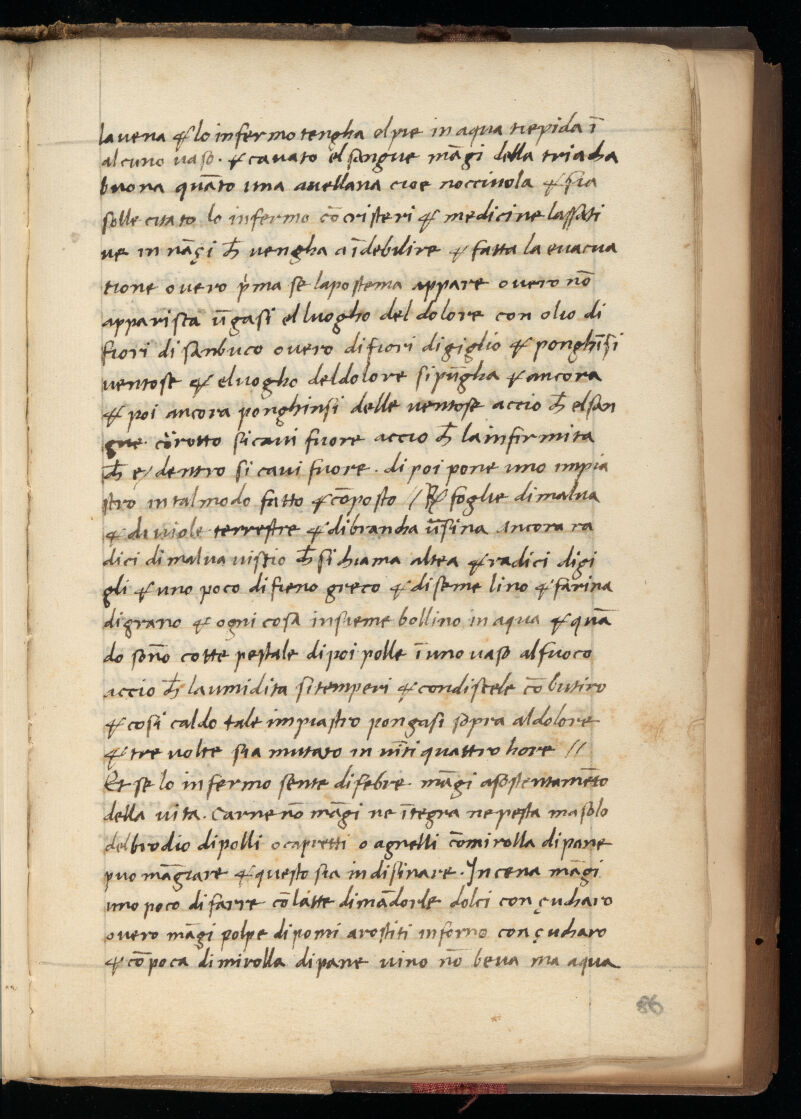 la uena & lo infermo tengha el pie in aqua tiepida ī
alcuno uaso. & cauato el sangue māgi della triacha
buona quāto una auellana cioe nocciuola & sia
sollecitato lo infermo cō cristeri & medicine lassati
ue in nāçi ch̄ uengha a īdebilire & fatta la euacua
tione ouero p̄ma se lapostema appare ouero nō
apparisca ūgasi el luogho del dolore con olio di
fiori di sanbuco ouero di fiori di giglio & ponghīsi
uentose & el luogho del dolore si pūgha & ancora
& poi ancora ponghinsi delle uentose accio ch̄ el san
gue corrotto si caui fuore accio ch̄ la infirmita
ch̄ e/ dentro si caui fuore. di poi pone uno impia
stro in tal modo fatto & cōposto // ℞ foglie di malua
& di uiole terrestre & di brancha ūsina Ancora ra
dici di malua uistio ch̄ si chiama altea & radici di gi
gli & uno poco di fieno greco & di seme lino & farina
di grano & ogni cosa insieme bollino in aqua & quā
do sōno cotte pestale di poi polle ī uno uaso al fuoco
accio ch̄ la umidita si temperi & condiscele cō butiro
& cosi caldo tale impiastro pongasi sopra al dolore
& tre uolte sia mutato in uīti quattro hore //
Et se lo infermo sente di febre māgi a sostentamēto
della uita. Carne nō māgi ne ītegra ne pesta ma solo
del brodio di polli o capretti o agnelli cō mirolla di pane
puo māgiare & questo sia in disinare. In cena māgi
uno poco di farre cō latte di mādorle dolci con çucharo
ouero māgi polpe di pomi arostiti in forno con çucharo
& cō poca di mirolla di pane uino nō beua ma aqua
86